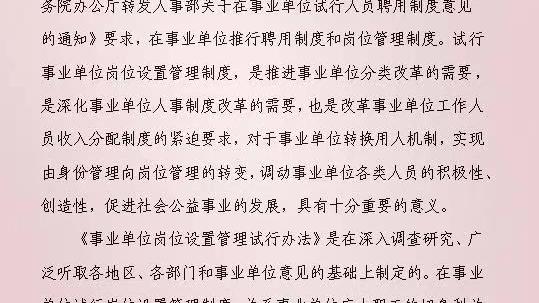 务院办公厅转发人事部关于在事业单位试行人员聘用制度意见
的通知》要求，在事业单位推行聘用制度和岗位管理制度。试行
事业单位岗位设置管理制度，是推进事业单位分类改革的需要，
是深化事业单位人事制度改革的需要，也是改革事业单位工作人
员收入分配制度的紧迫要求，对于事业单位转换用人机制，实现
由身份管理向岗位管理的转变，调动事业单位各类人员的积极性、
创造性，促进社会公益事业的发展，具有十分重要的意义。
《事业单位岗位设置管理试行办法》是在深入调查研究、广
泛听取各地区、各部门和事业单位意见的基础上制定的。在事业
单位试行岗位设置管理制度，关系事业单位广大职工的切身利益